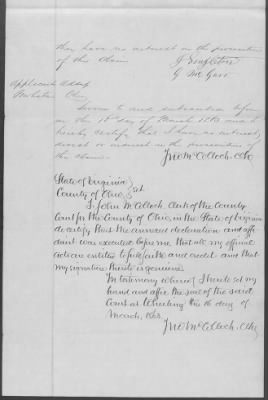 they have no interest in the prosecution
of this claim.
J Singleton
G. Mc
Applicants Address
Ohio
Sworn to and subscribed before
me this 18th day of March 1863 and I
hereby certify that I have no interest,
direct or indirect in the prosecution of
this claim.
Jno McColloch, Clk
State of Virginia
County of Ohio, Sct
I, John McColloch Clerk of the County
Court for the County of Ohio, in the State of Virginia
do certify that the annexed declaration and affi
davit was executed before me that all my official
acts are entitled to full faith and credit and that
my signature thereto is genuine.
In testimony whereof I hereto set my
hand and affix the seal of the said
Court at Wheeling this 18 day of
March, 1863.
Jno McColloch, Clk